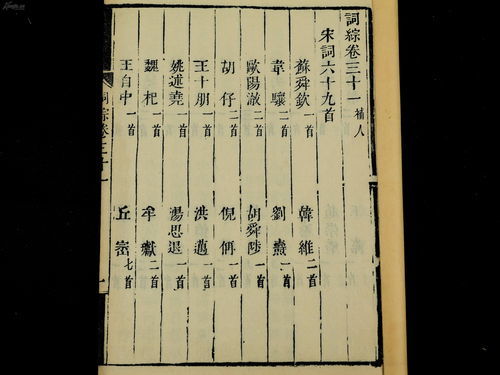 詞綜卷三十一 補人
宋詞六十九首
蘇舜欽 一首 韓維 二首
韋驤 二首 劉燾 一首
歐陽澈 二首 胡舜陟 一首
胡仔 二首 倪偁 一首
王十朋 一首 洪邁 一首
姚述堯 一首 湯思退 一首
魏杞 一首 牟獻 二首
王自中 一首 丘崈 七首
詞綜卷三十一
一